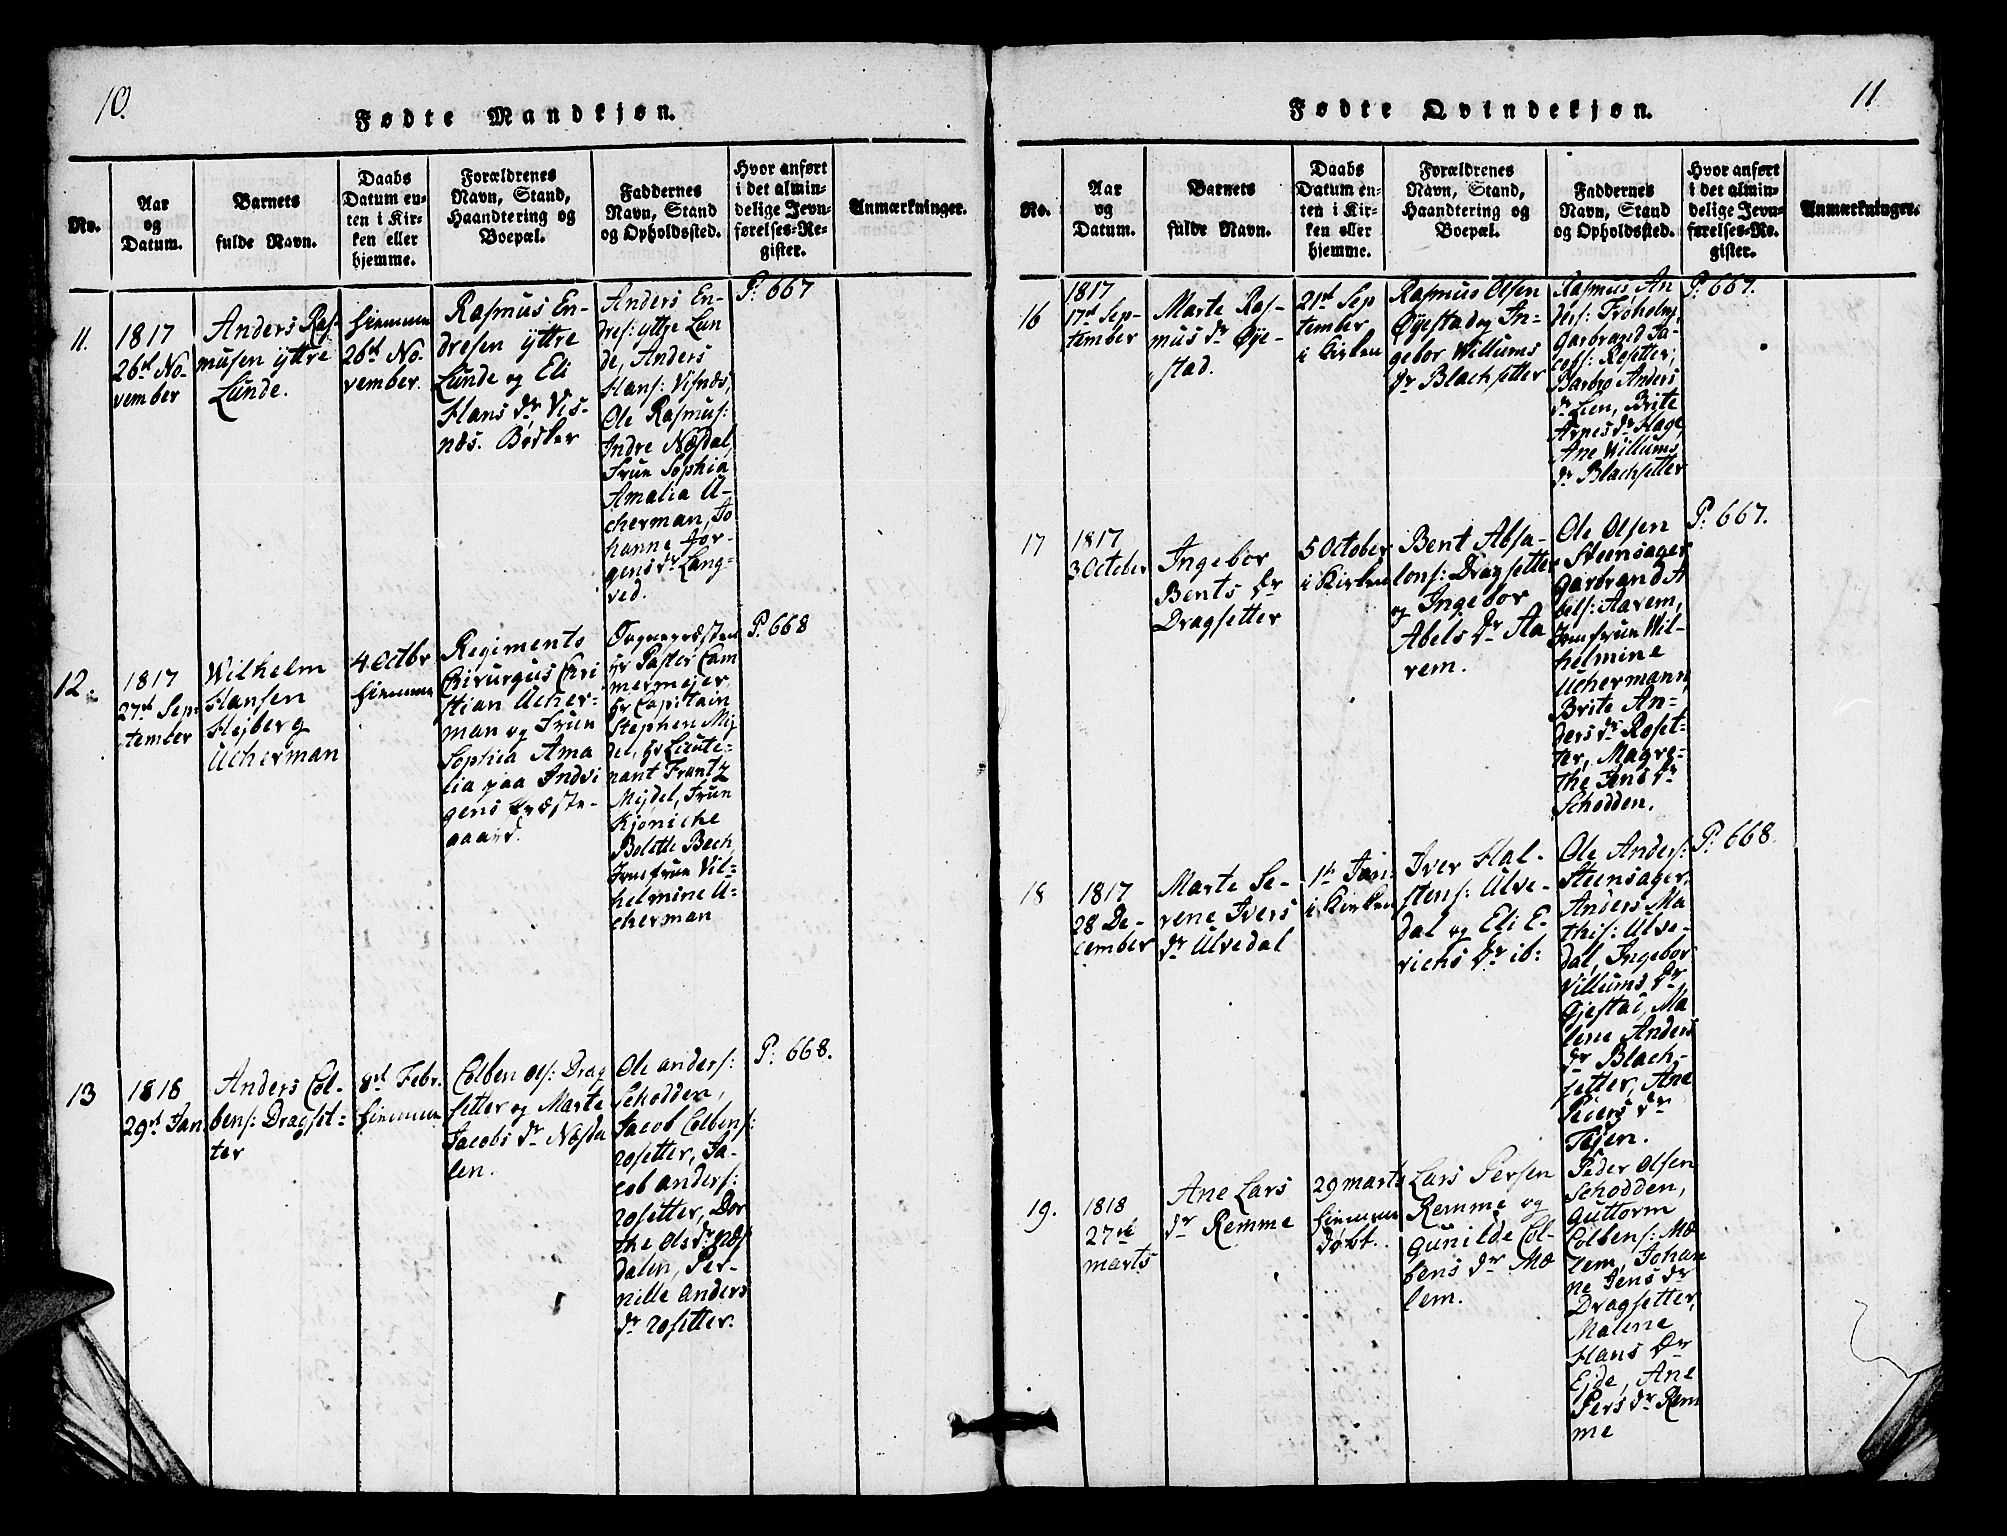 10.
Fødte Mandkjøn.
No.
Aar
og
Datum.
Barnets
fulde Navn.
Daabs
Datum en-
ten i Kir-
ken eller
hjemme.
Forældrenes
Navn, Stand,
Haandtering og
Boepæl.
Faddernes
Navn, Stand
og Opholdssted.
Hvor anført
i det almin-
delige Jevn-
førelses-Re-
gister.
Anmærkninger.
11.
1817
26de No-
vember
Anders Ras-
musen yttre
Lunde.
hiemme
26de No-
vember.
Rasmus En-
dresen yttre
Lunde og Eli
Hans dr Vis-
næs. Bødker
Anders En-
dres: yttre Lun
de, Anders
Hans: Visnæs,
Ole Rasmus:
Indre Næsdal,
Frue Sophia
Amalia U-
cherman, Jo
hanne Jør-
gensdr Lang-
ved.
P: 667
12.
1817
27de Sep-
tember
Wilhelm
Hansen
Hejberg
Ucherman
4 Octbr
hiemme
Regiments
Chirurgus Chri
stian Ucher-
man og Frue
Sophia Ama
lia paa Indvi
gens Præste-
gaard.
Sognepræsten
Hr Pastor Cam
mermejer,
Hr Capitain
Stephen Mij
del, Hr Lieute-
nant Frantz
Mijdel, Frue
Kjøniche
Bolette Bech,
Jomfrue Vil-
helmine U-
cherman
P. 668
13
1818
29de Jan.
Anders Col-
bens: Dragset-
ter
8de Febr.
hiemme
Colben Ols: Drag
setter og Marte
Jacobs dr Næsda
len.
Ole anders:
Schodden,
Jacob Colbens:
rosetter, Ja-
cob anders:
rosetter, Dor
the Olsdr Næs
dalen, Per-
nille anders
dr rosetter.
P: 668.
11
Fødte Qvindekjøn.
No.
Aar
og
Datum.
Barnets
fulde Navn.
Daabs
Datum en-
ten i Kir-
ken eller
hjemme.
Forældrenes
Navn, Stand,
Haandtering og
Boepæl.
Faddernes
Navn, Stand
og Opholdssted.
Hvor anført
i det almin-
delige Jevn-
førelses-Re-
gister.
Anmærkninger.
16
1817
17de Sep-
tember
Marte Ras-
mus dr Øye-
stad.
21de Sep
tember
i Kirken
Rasmus Olsen
Øyestad og In-
gebor Willums
dr Blachsetter
Rasmus An
ders: Froholm,
Garbrand Ja-
cobs: Rosetter,
Barbro Anders
dr Lien, Brite
Arnesdr Hage,
Ane Willums
dr Blachsetter
P: 667.
17
1817
3 October
Ingebor
Bents dr
Dragsetter
5 October
i Kirken
Bent Absa-
lons: Dragsetter
og Ingebor
Abels dr Aa
rem.
Ole Olsen
Steensager
Garbrand A
bels: Aarem,
Jomfrue Wil-
helmine
Uchermann,
Brite An-
ders dr Roset-
ter, Magre-
the Jens dr
Schodden.
P: 667.
18
1817
28 De-
cember
Marte Se-
rene Ivers
dr Ulvedal
1te Jan:
i Kirken
Iver Hal-
stens: Ulve-
dal og Eli E-
richs dr ib:
Ole Anders:
Steensager,
Anders Ma
this: Ulve-
dal, Ingebor
Villums dr
Gjestad, Ma
lene Anders
dr Blach-
setter, Ane
Peiers dr
Tisen.
P: 668.
19.
1818
27de
marts
Ane Lars
dr Remme
29 marts
hiemme
døbt.
Lars Persen
Remme og
Gunilde Col-
bens dr Mæ
lem.
Peder Olsen
Schodden,
Guttorm
Colbens: Mæ
lem, Johan
ne Jens dr
Dragsetter,
Malene
Hans dr
Ejde, Ane
Pers dr Rem
me